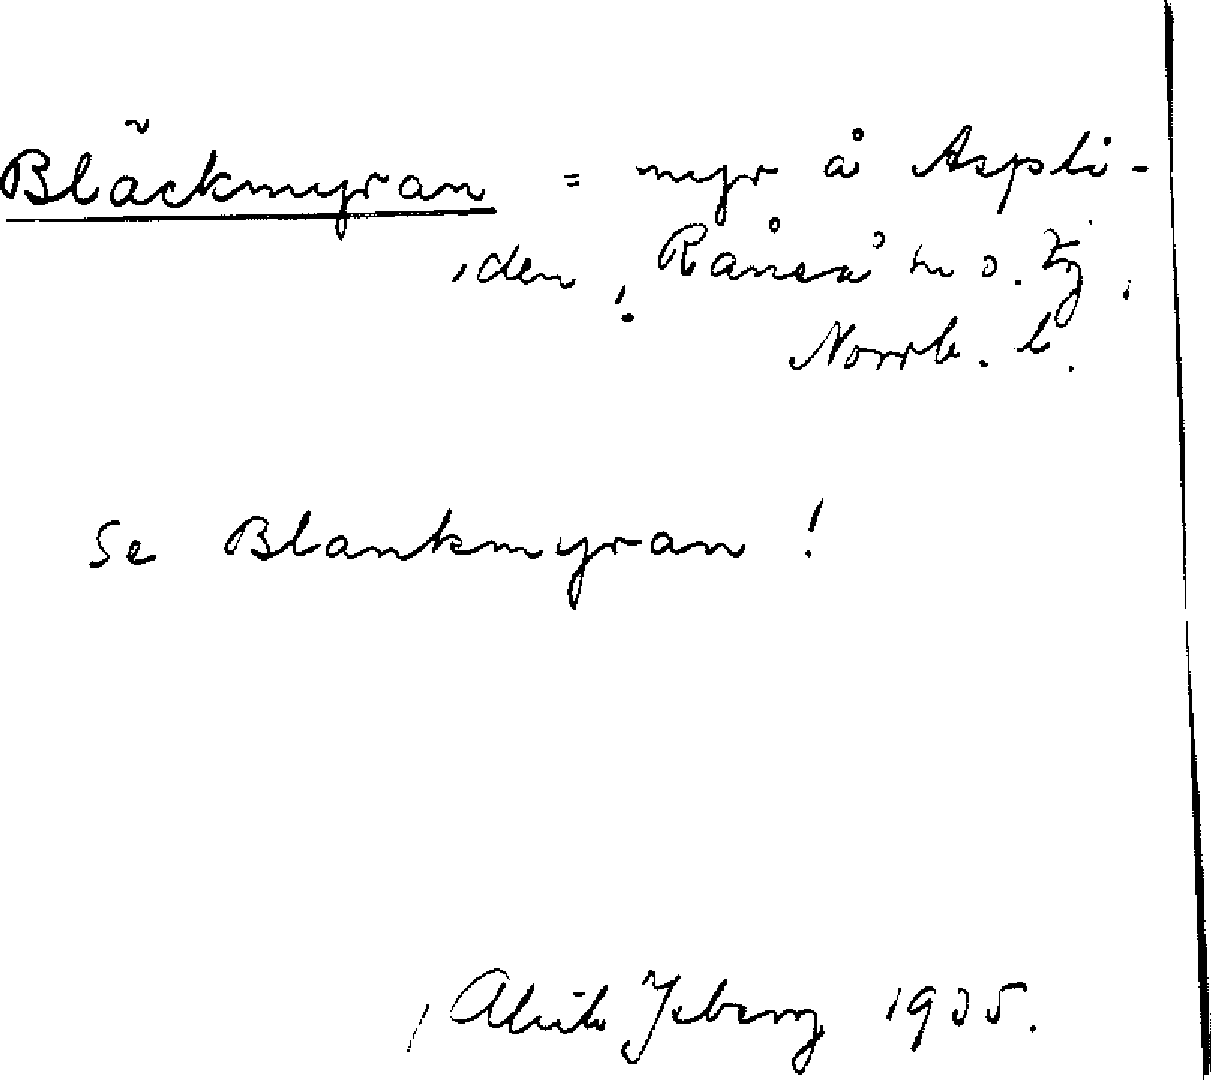 Bläckmyran = myr å Aspli-
den, Råneå sn o. tg,
Norrb. l.
Se Blankmyran!
Isberg 1935.